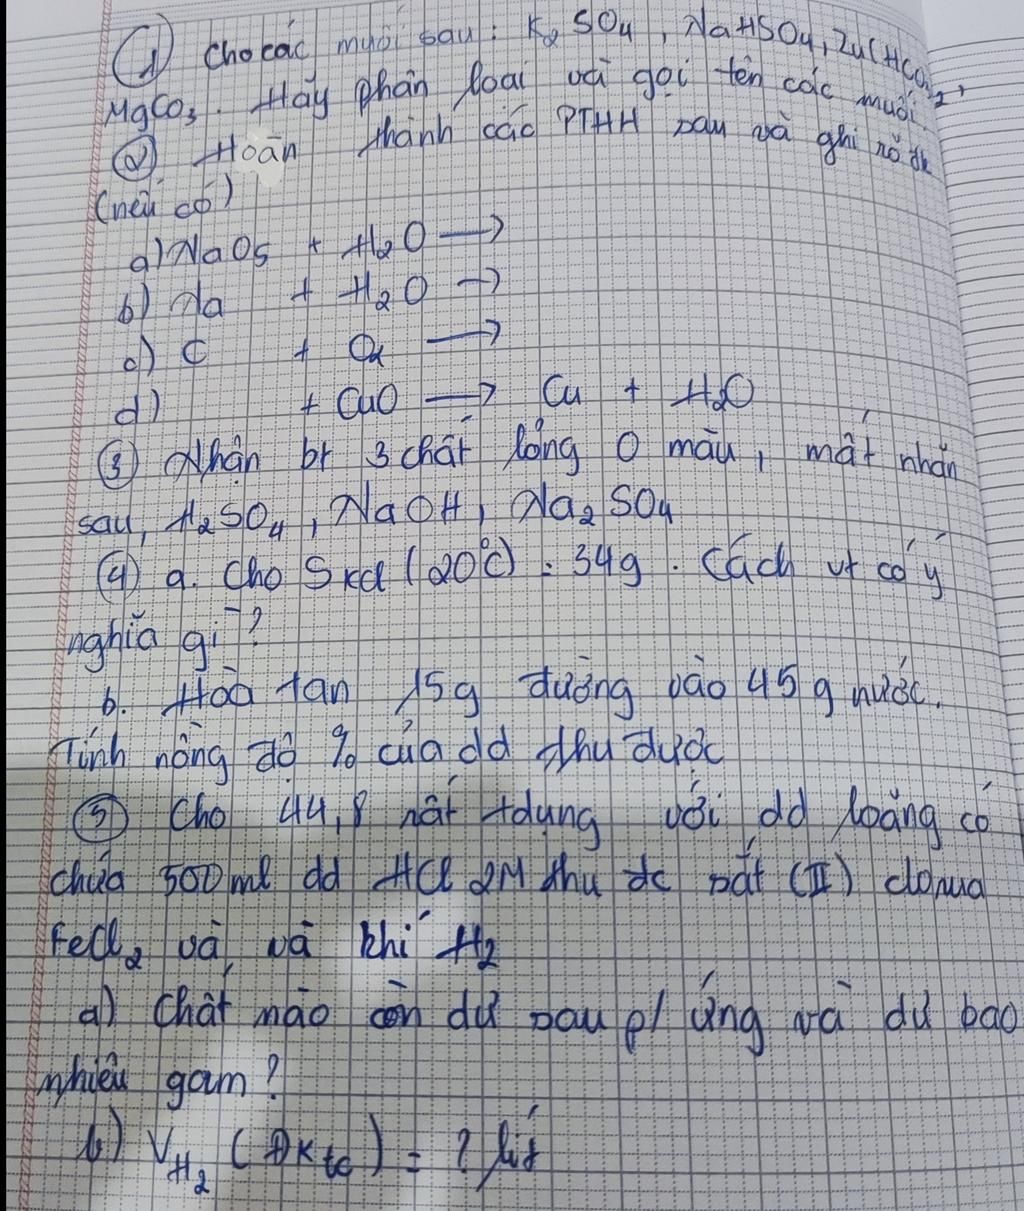 ① Cho các muối sau: K₂SO₄, NaHSO₄, Zn(HCO₃)₂,
MgCO₃. Hãy phân loại và gọi tên các muối.
② Hoàn thành các PTHH sau và ghi rõ đk
(nếu có)
a) NaO₅ + H₂O →
b) Na + H₂O →
c) C + O₂ →
d) + CuO → Cu + H₂O
③ Nhận bt 3 chất lỏng 0 màu, mất nhãn
sau, H₂SO₄, NaOH, Na₂SO₄
④ a. Cho SKCl (20°C) = 34g. Cách vt có ý
nghĩa gì?
b. Hoà tan 15g đường vào 45g nước.
Tính nồng độ % của dd thu được
⑤ Cho 44,8 sắt tdụng với dd loãng có
chứa 500ml dd HCl 2M thu đc sắt (II) clorua
FeCl₂ và, và khí H₂
a) Chất nào còn dư sau p/ ứng và dư bao
nhiêu gam?
b) VH₂ (ĐKtc) = ? lít